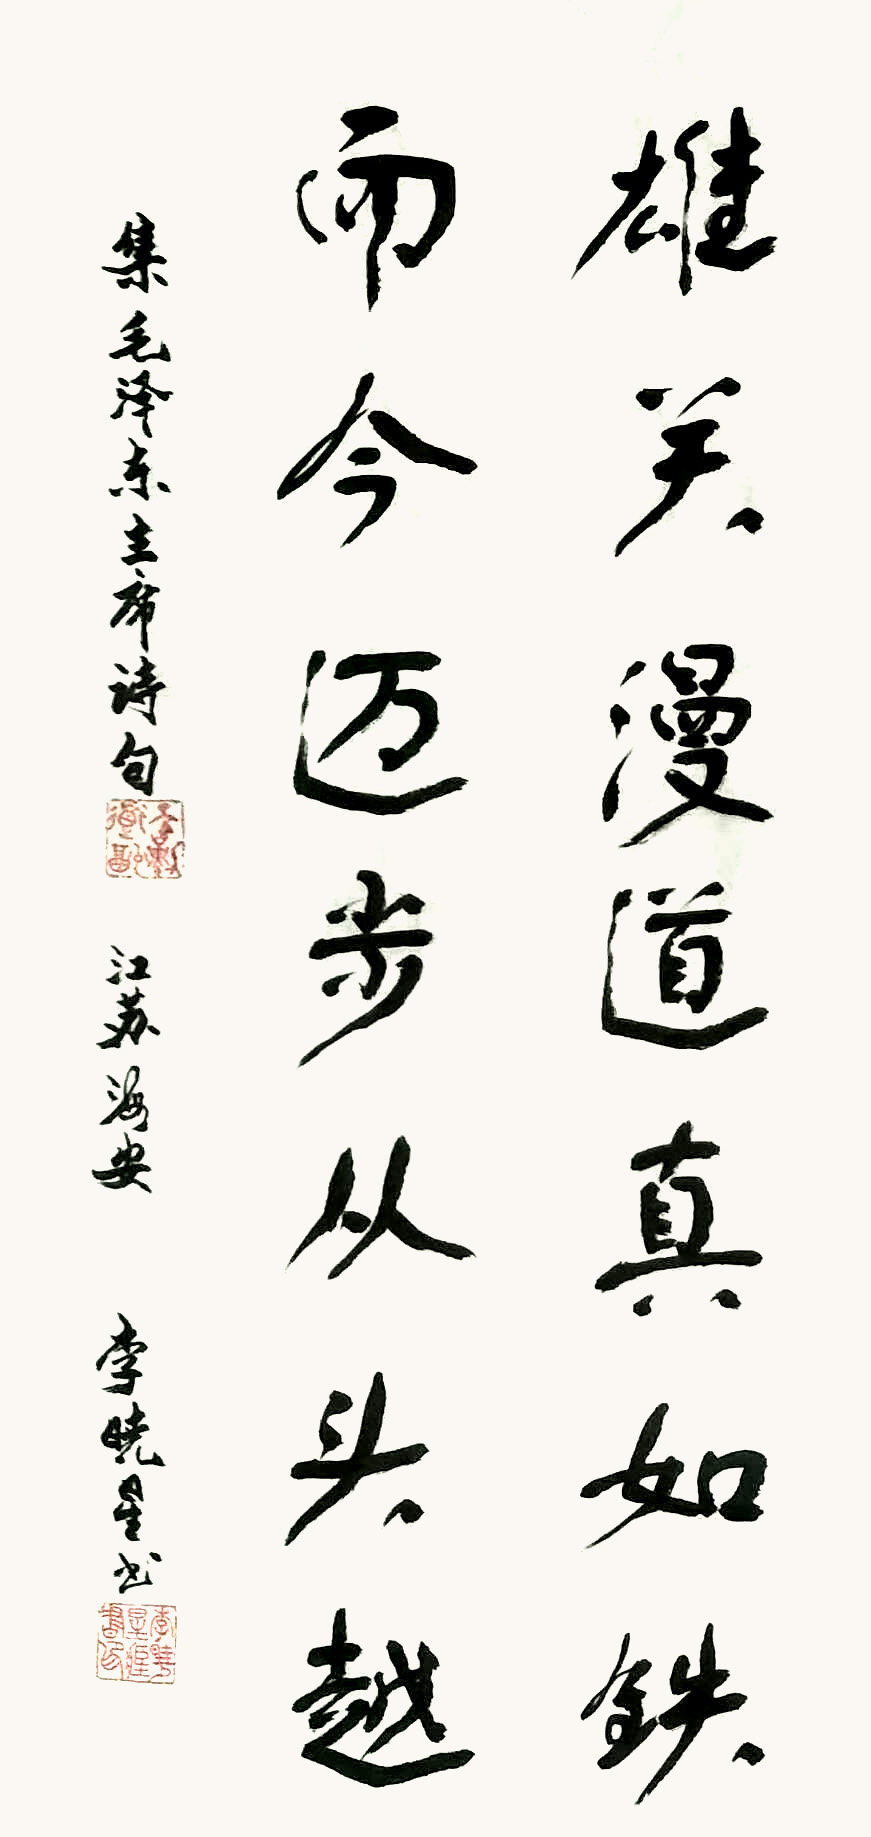 雄关漫道真如鉄
而今迈步从头越
集毛泽东主席诗句
江苏海安
李晓星书